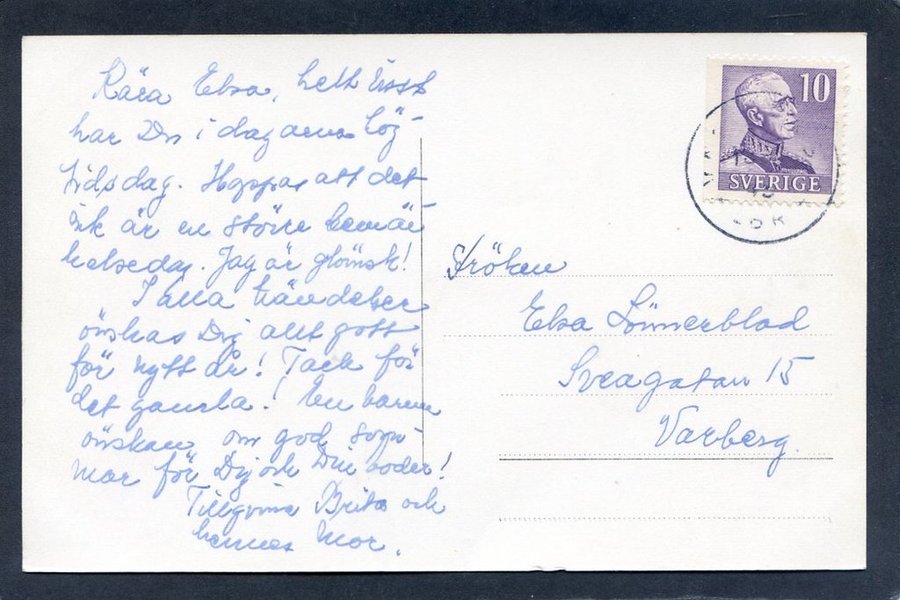 Kära Elsa, helt visst
har Du i dagarna hög-
tidsdag. Hoppas att det
ink är en större bemär-
kelsedag. Jag är glömsk!
I alla händelser
önskas Dig allt gott
för nytt år! Tack för
det gamla! En varm
önskan om god som-
mar för Dig och Din
Tillgivna Brita och
hennes Mor.
10
SVERIGE
Fröken
Elsa Lönnerblad
Sveagatan 15
Varberg.